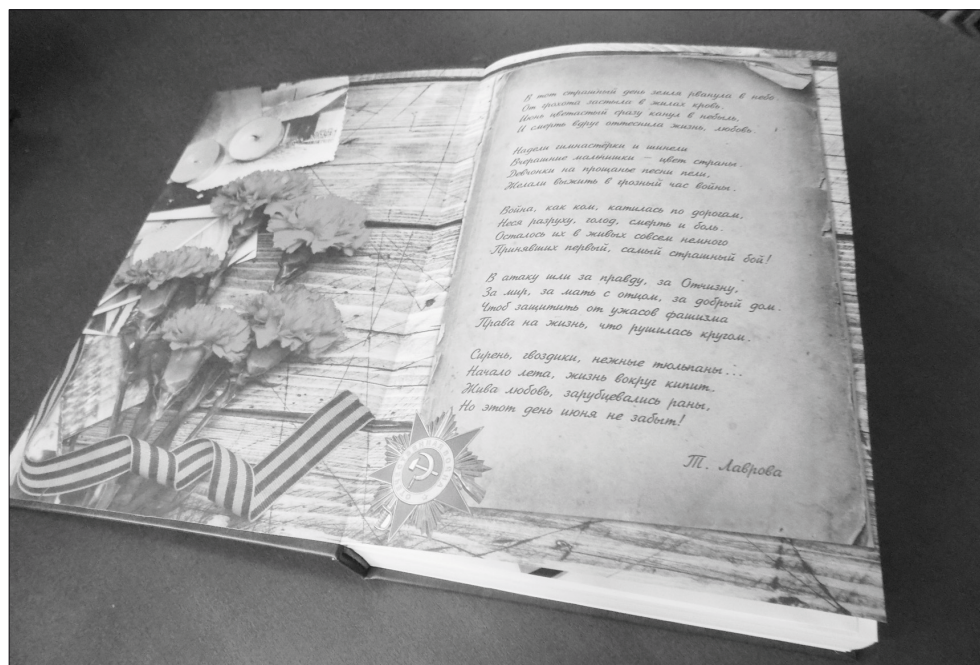 В тот страшный день земля рванула в небо.
От грохота застыла в жилах кровь.
Июнь цветастый сразу канул в небыль,
И смерть вдруг оттеснила жизнь, любовь.
Надели гимнастёрки и шинели
Вчерашние мальчишки — цвет страны.
Девчонки на прощанье песни пели,
Желали выжить в грозный час войны.
Война, как ком, катилась по дорогам,
Неся разруху, голод, смерть и боль.
Осталось их в живых совсем немного
Принявших первый, самый страшный бой!
В атаку шли за правду, за Отчизну,
За мир, за мать с отцом, за добрый дом.
Чтоб защитить от ужасов фашизма
Права на жизнь, что рушилась кругом.
Сирень, гвоздики, нежные тюльпаны...
Начало лета, жизнь вокруг кипит.
Жива любовь, зарубцевались раны,
Но этот день июня не забыт!
Т. Лаврова